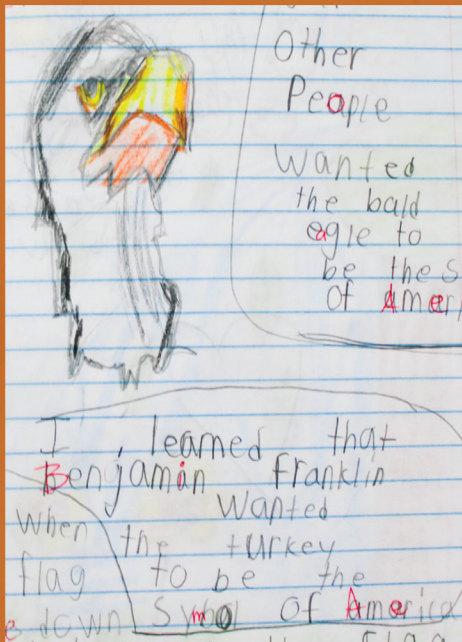 Other
People
Wanted
the bald
eagle to
be the s
Of Amer
I learned that
Benjamin Franklin
Wanted
the turkey
to be the
Symol Of America
When
flag
down